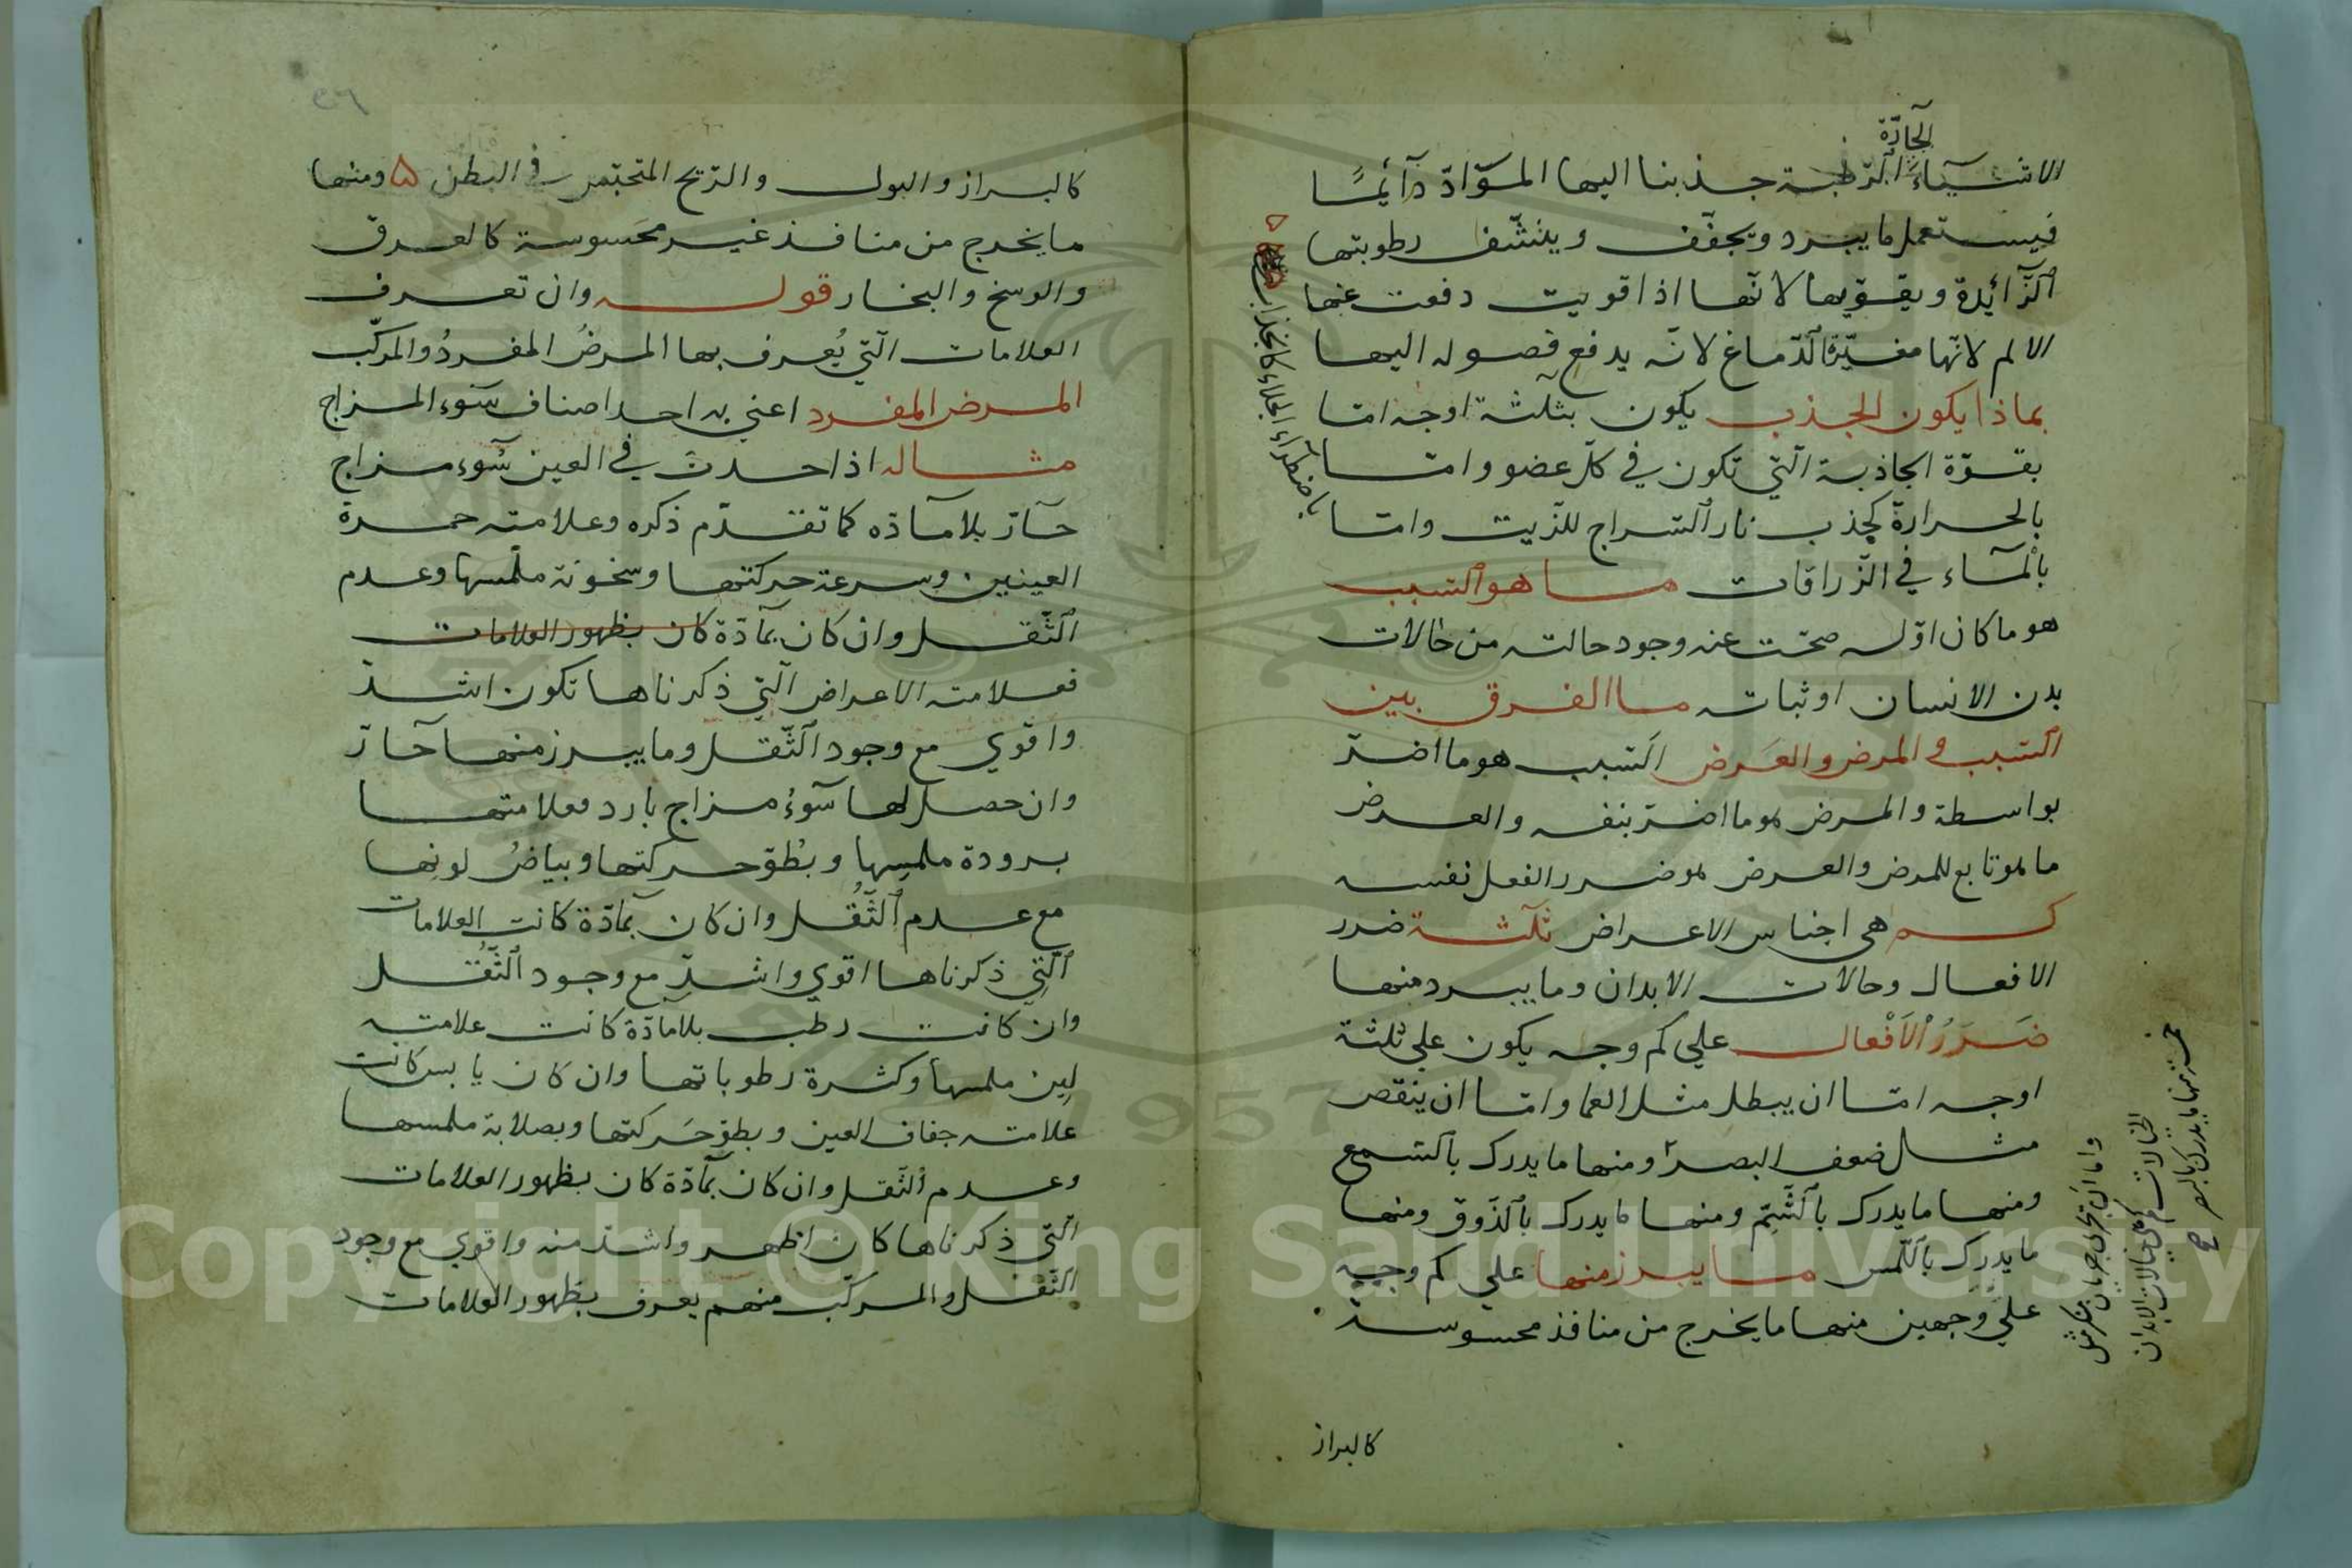 الحادّة
الاشيآء الرّطبة جذبنا اليها الموّادّ دآئمًا
فيستعمل ما يبرد ويجفّف وينشّف رطوبتها
الزّآئدة ويقوّيها لانّها اذا قويت دفعت عنها
الالم لانّها مغيّرة الدّماغ لانّه يدفع فصوله اليها
بماذا يكون الجذب يكون بثلثة اوجه امّا
بقوّة الجاذبة الّتي تكون في كلّ عضو وامّا
بالحرارة كجذب نار السّراج للزّيت وامّا
بالمآء في الزّراقات ما هو السّبب
هو ما كان اوّله صحّت عنه وجود حالته من حالات
بدن الانسان او ثباته ما الفرق بين
السّبب والمرض والعَرض السّبب هو ما اضرّ
بواسطة والمرض هو ما اضرّ بنفسه والعرض
ما هو تابع للمرض والعرض هو ضرر الفعل نفسه
كم هي اجناس الاعراض ثلثة ضرر
الافعال وحالات الابدان وما يبرد منها
ضَرَرُ الْاَفْعال علي كم وجه يكون علي ثلثة
اوجه امّا ان يبطل مثل العما وامّا ان ينقص
مثل ضعف البصر ومنها ما يدرك بالسّمع
ومنها ما يدرك بالشّمّ ومنها ما يدرك بالذّوق ومنها
ما يدرك باللّمس ما يبرز منها علي كم وجه
علي وجهين منها ما يخرج من منافذ محسوسة
كالبراز
باضطرآء الخلاء كانجذاب
واما ان تجري جريان منكر مثل
الخيالات كم هي حالات الابدان
خمسة منها ما يدرك بالبصر صح
٣٦
كالبراز والبول والرّيح المتحتمر في البطن ٥ ومنها
ما يخرج من منافذ غير محَسوسة كالعرق
والوسخ والبخار قوله وان تعرف
العلامات الّتي يُعرف بها المرضُ المفردُ والمركّب
المرض المفرد اعني به احد اصناف سَوء المزاج
مثاله اذا حدث في العين سُوء مزاج
حآرّ بلا مآدّه كما تقدّم ذكره وعلامته حمرة
العينين وسرعة حركتها وسخونة ملمسها وعدم
الثّقل وان كان بمآدّة كان بظهور العلامات
فعلامته الاعراض الّتي ذكرناها تكون اشدّ
واقوي مع وجود الثّقل وما يبرز منها حآرّ
وان حصل لها سَوءُ مزاج بارد فعلامتها
برودة ملمسها وبُطوّ حركتها وبياضُ لونها
مع عدم الثّقُل وان كان بمآدّة كانت العلامات
الّتي ذكرناها اقوي واشدّ مع وجود الثّقُل
وان كانت رطب بلا مادّة كانت علامته
لين ملمسها وكثرة رطوباتها وان كان يابس كانت
علامته جفاف العين وبطوّ حَركتها وبصلابة ملمسها
وعدم الثّقل وان كان بمآدّة كان بظهور العلامات
الّتي ذكرناها كان اظهر واشدّ منه واقوي مع وجود
الثّقل والمركّب منهم يعرف بظهور العلامات
Copyright © King Saud University
1957